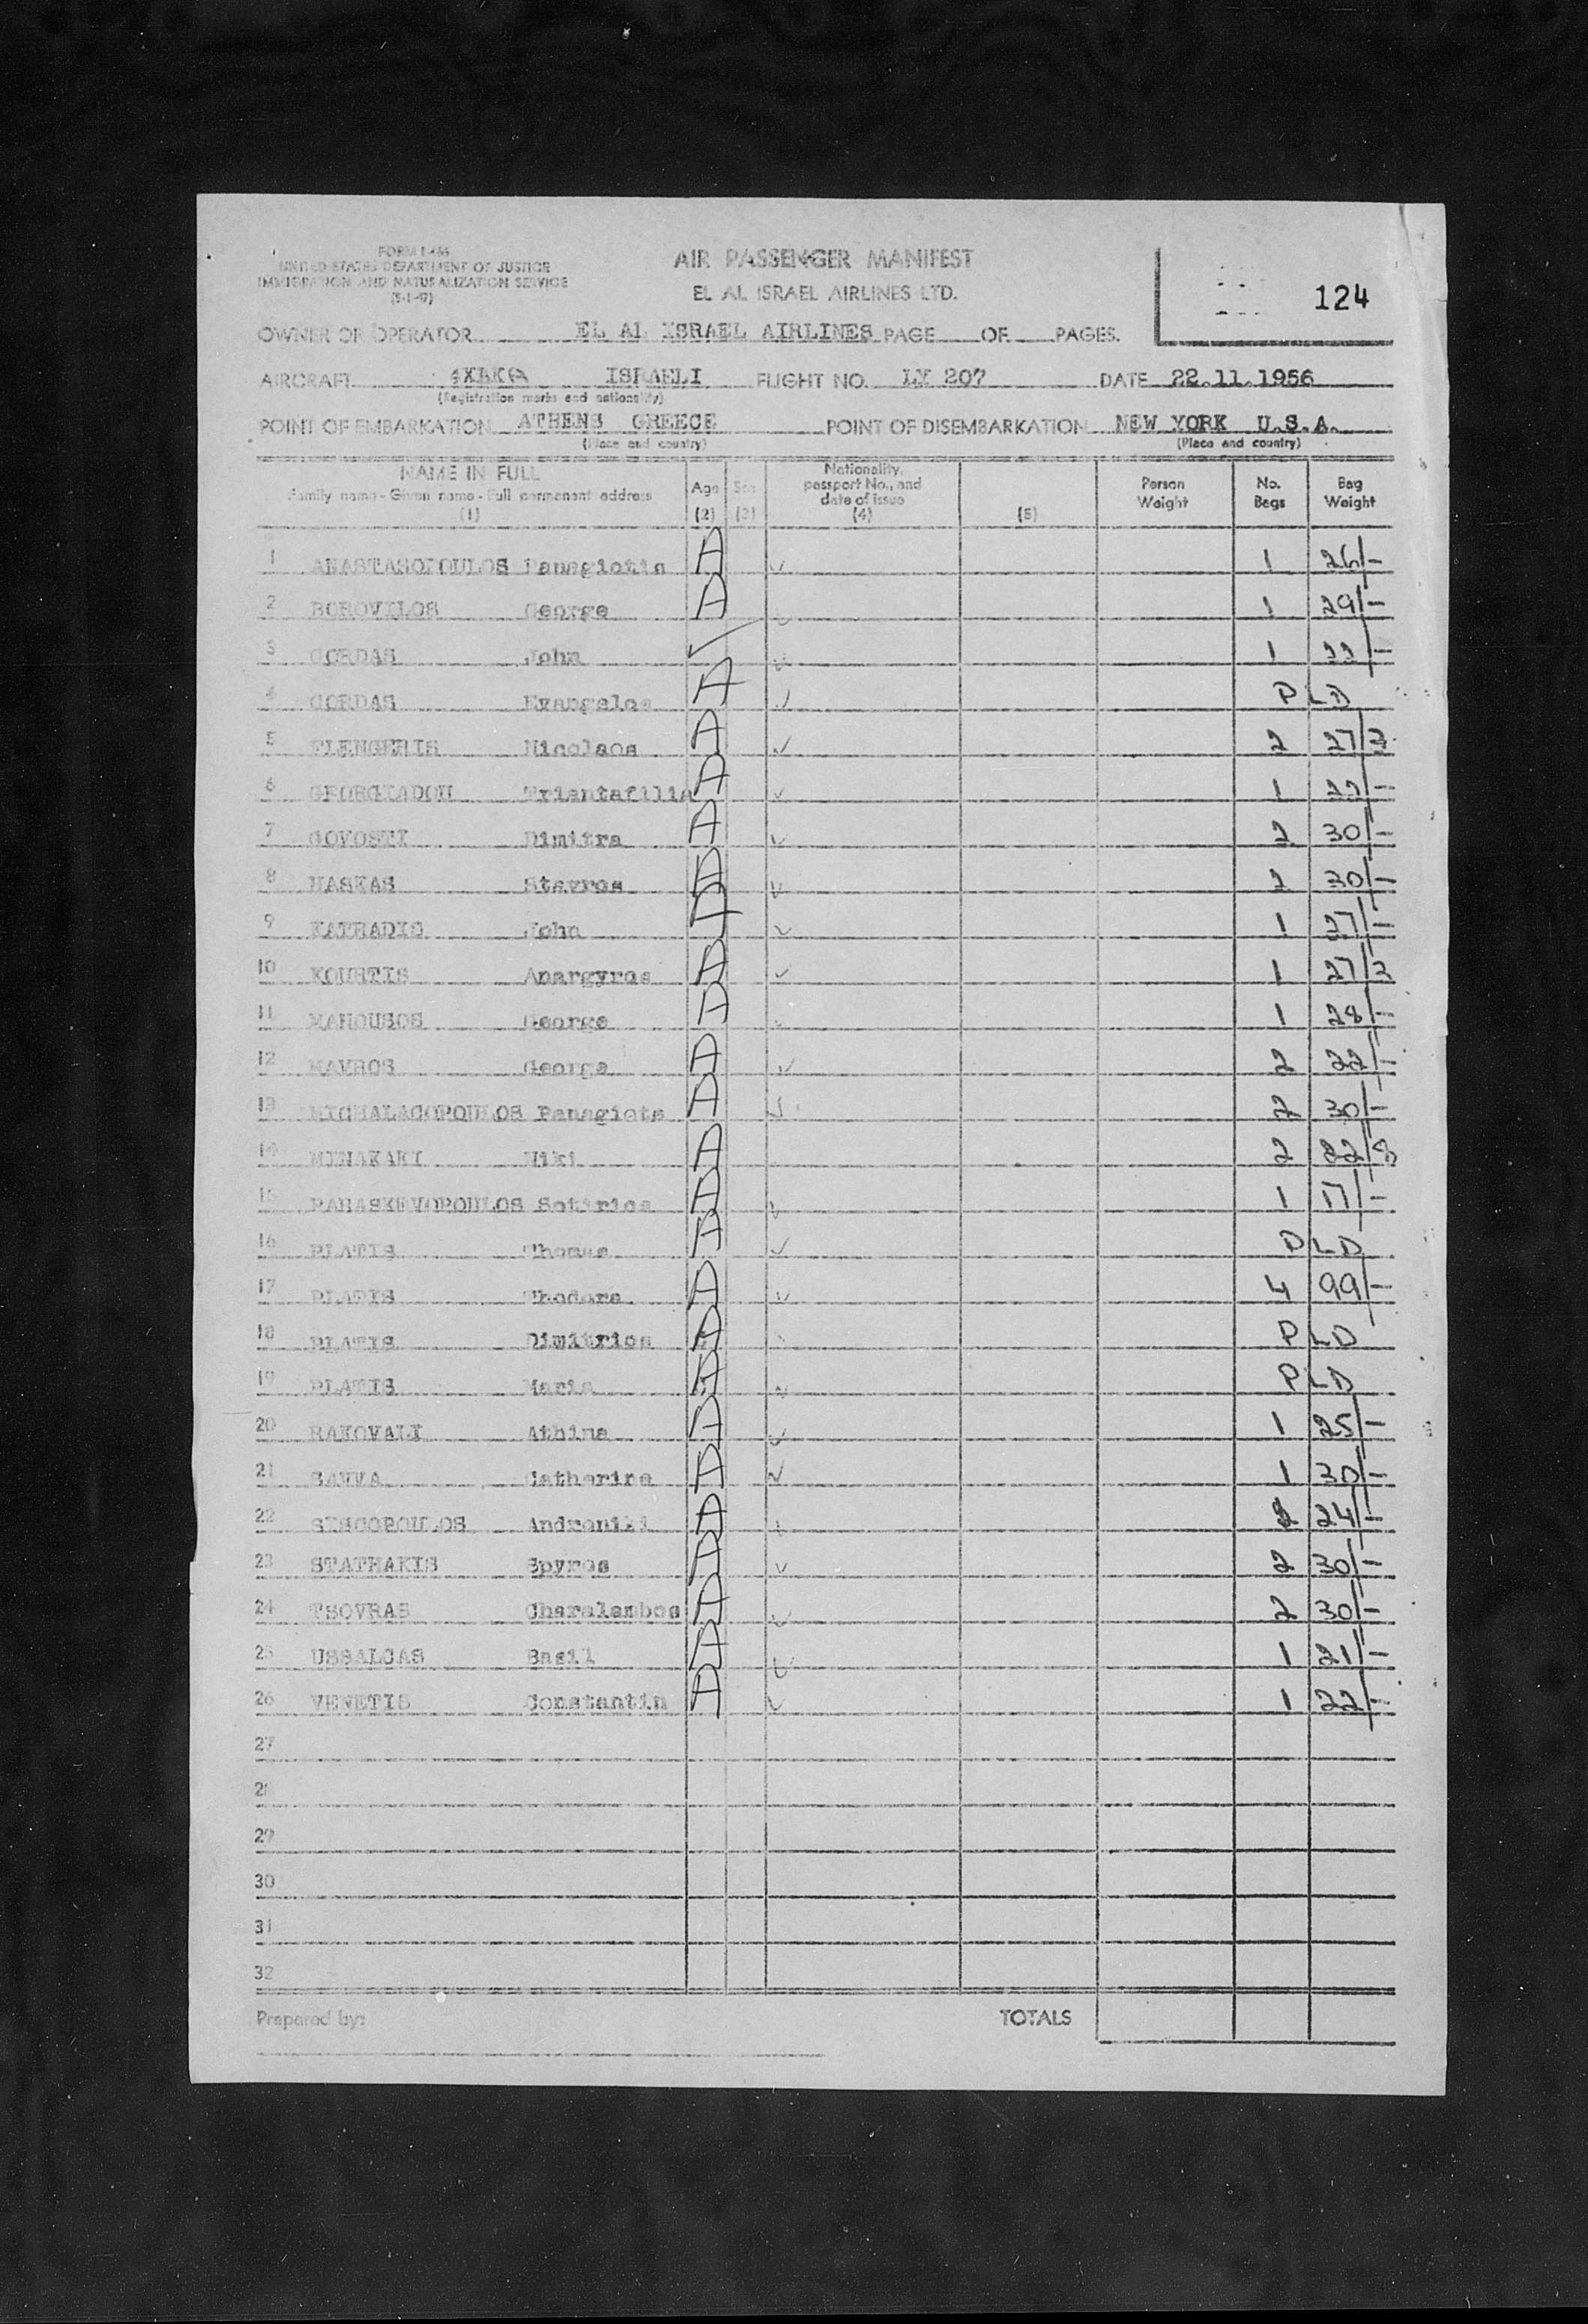 FORM I-466
UNITED STATES DEPARTMENT OF JUSTICE
IMMIGRATION AND NATURALIZATION SERVICE
AIR PASSENGER MANIFEST
EL AL ISRAEL AIRLINES LTD.
124
OWNER OR OPERATOR EL AL ISRAEL AIRLINES PAGE OF PAGES.
AIRCRAFT ISRAELI FLIGHT NO. LY 207 DATE 22.11.1956
(Registration marks and nationality)
POINT OF EMBARKATION ATHENS GREECE POINT OF DISEMBARKATION NEW YORK U.S.A.
(Place and country) (Place and country)
NAME IN FULL
Family name - Given name - Full permanent address
(1)
Age
(2)
Sex
(3)
Nationality,
passport No., and
date of issue
(4)
(5)
Person
Weight
No.
Bags
Bag
Weight
1 ANASTASOPOULOS Panagiotis A ✓ 1 26/-
2 BOROVILOS George A ✓ 1 29/-
3 GORDAS John ✓ ✓ 1 /-
4 GORDAS Evangelos A ✓ PLD
5 Nicolaos A ✓ 2 27/2
6 GEORGIADOU Triantafilia A ✓ 1 /-
7 GOVOSTI Dimitra A ✓ 2 30/-
8 Stavros A ✓ 2 30/-
9 John A ✓ 1 27/-
10 KOURTIS Anargyros A ✓ 1 27/2
11 George A ✓ 1 28/-
12 MAVROS George A ✓ 2 22/-
13 Panagiota A ✓ 2 30/-
14 Niki A 2 22/
15 PARASKEVOPOULOS Sotirios A ✓ 1 17/-
16 PLATIS Thomas A ✓ PLD
17 PLATIS Thodora A ✓ 4 99/-
18 PLATIS Dimitrios A ✓ PLD
19 PLATIS Maria A ✓ PLD
20 RAKOVALI Athina A ✓ 1 25/-
21 SAVVA Catherine A ✓ 1 30/-
22 Androniki A ✓ 2 24/-
23 STATHAKIS Spyros A ✓ 2 30/-
24 TSOVRAS Charalambos A ✓ 2 30/-
25 USSALCAS Basil A ✓ 1 21/-
26 VENETIS Constantin A ✓ 1 22/-
27
28
29
30
31
32
Prepared by: TOTALS